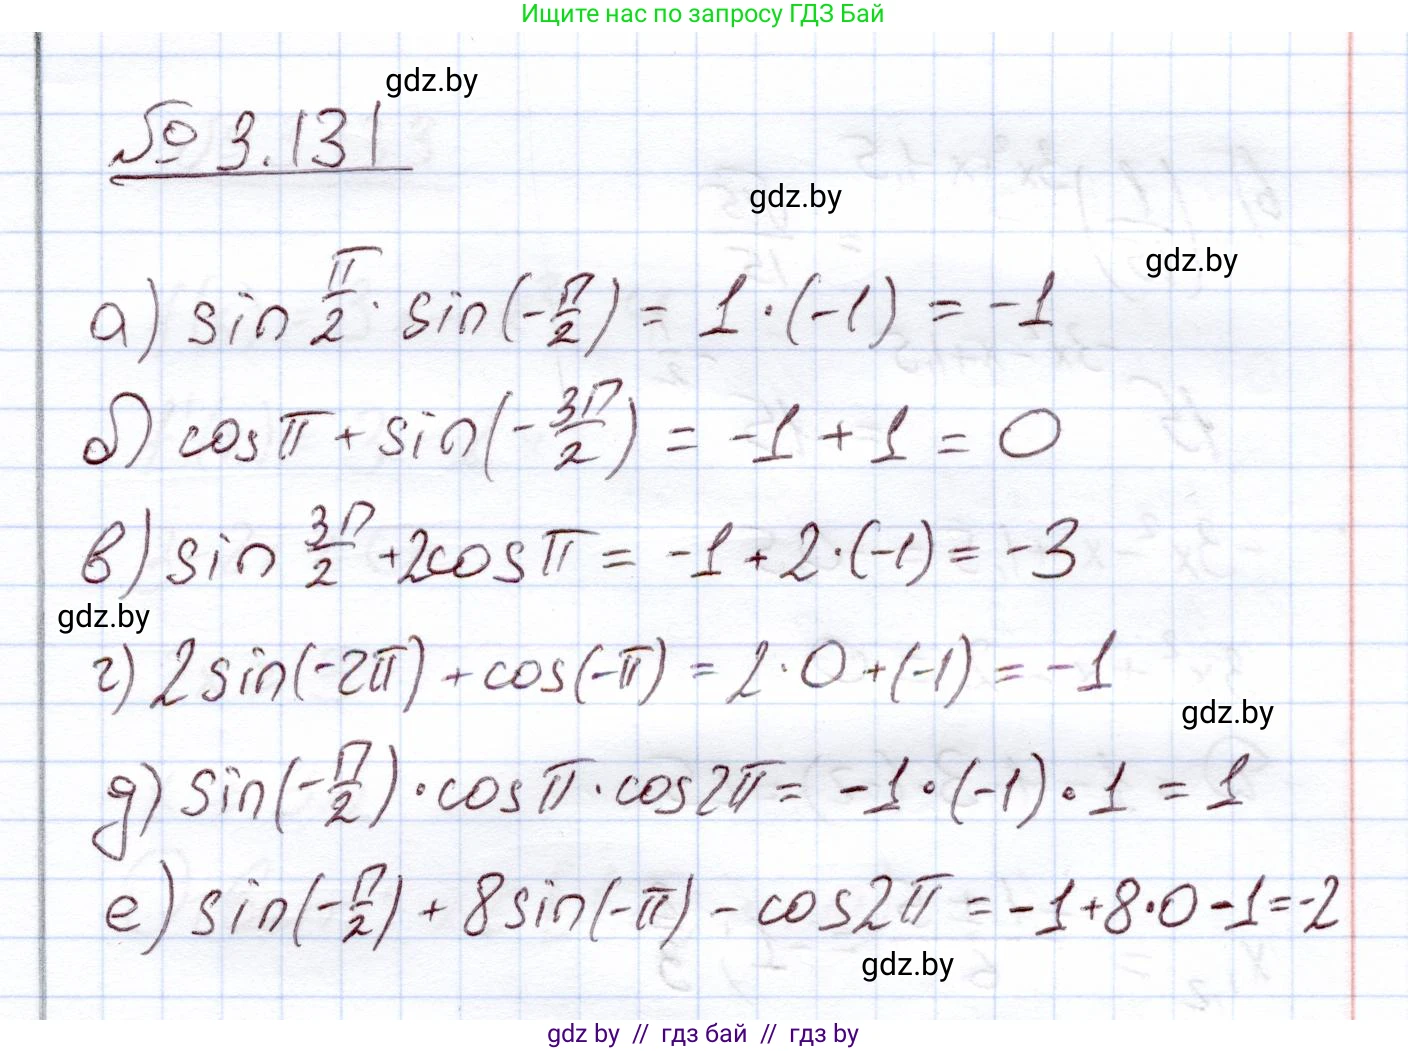 Ищите нас по запросу ГДЗ Бай
gdz.by
№ 3.131
gdz.by
gdz.by
а) sin π/2 · sin(-π/2) = 1 · (-1) = -1
б) cos π + sin(-3π/2) = -1 + 1 = 0
в) sin 3π/2 + 2cos π = -1 + 2 · (-1) = -3
gdz.by
г) 2 sin(-2π) + cos(-π) = 2 · 0 + (-1) = -1
gdz.by
д) sin(-π/2) · cos π · cos 2π = -1 · (-1) · 1 = 1
е) sin(-π/2) + 8 sin(-π) - cos 2π = -1 + 8 · 0 - 1 = -2
gdz.by
gdz by // гдз бай // гдз by